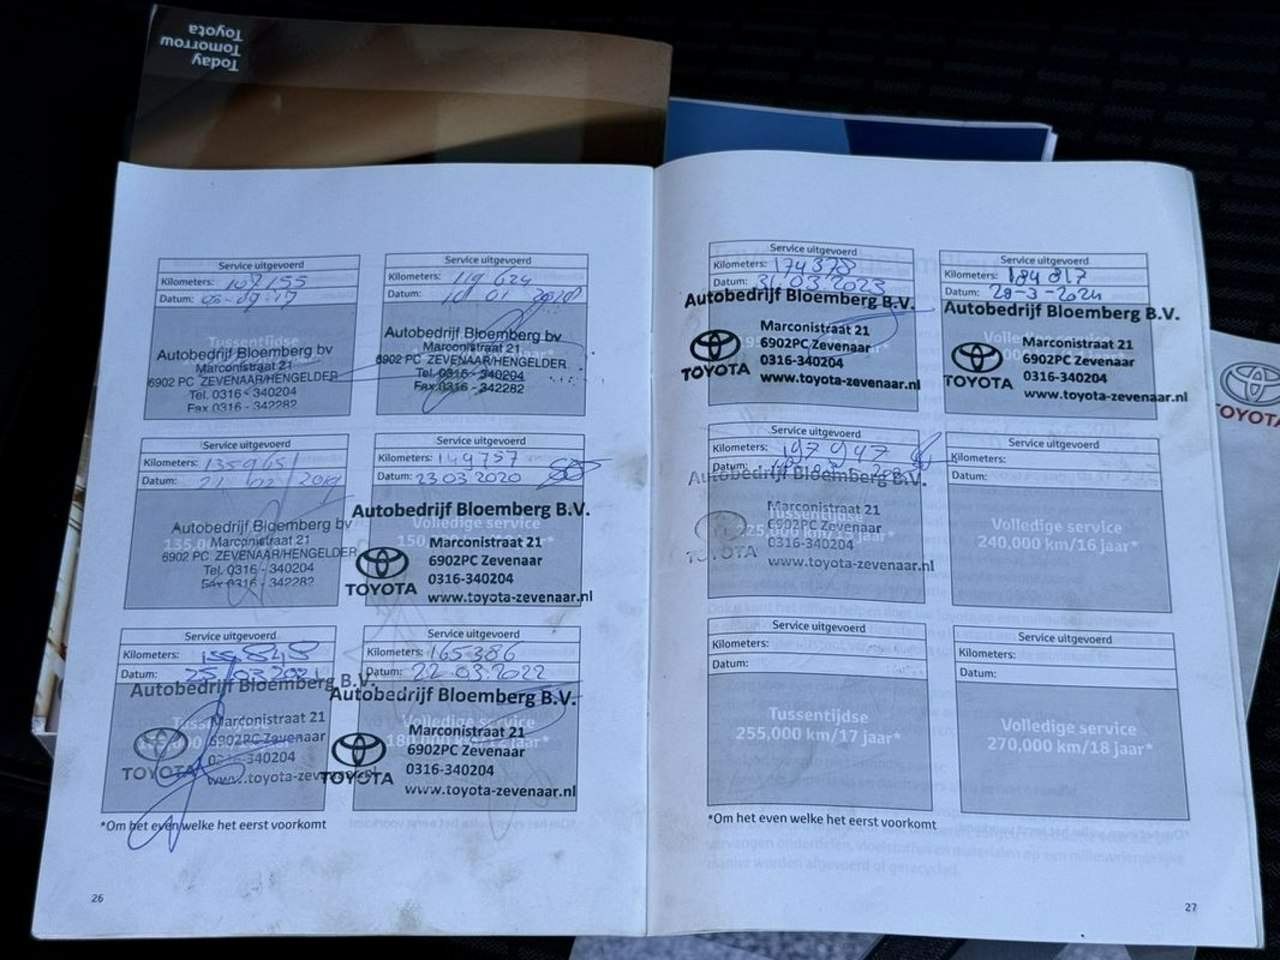 Today
Tomorrow
Toyota
Service uitgevoerd
Kilometers: 107155
Datum: -09-17
Tussentijdse
Autobedrijf Bloemberg bv
Marconistraat 21
6902 PC ZEVENAAR/HENGELDER
Tel. 0316 - 340204
Fax 0316 - 342282
Service uitgevoerd
Kilometers: 119 624
Datum: 10 01 2018
Autobedrijf Bloemberg bv
Marconistraat 21
6902 PC ZEVENAAR/HENGELDER
Tel. 0316 - 340204
Fax 0316 - 342282
Service uitgevoerd
Kilometers: 135965
Datum: 21 02 2019
Autobedrijf Bloemberg bv
Marconistraat 21
6902 PC ZEVENAAR/HENGELDER
Tel. 0316 - 340204
Fax 0316 - 342282
Service uitgevoerd
Kilometers: 149757
Datum: 23 03 2020
Autobedrijf Bloemberg B.V.
Volledige service
Marconistraat 21
6902PC Zevenaar
0316-340204
TOYOTA www.toyota-zevenaar.nl
Service uitgevoerd
Kilometers: 159848
Datum: 25/03/2021
Autobedrijf Bloemberg B.V.
Marconistraat 21
6902PC Zevenaar
0316-340204
TOYOTA www.toyota-zevenaar.nl
Service uitgevoerd
Kilometers: 165386
Datum: 22 03 2022
Autobedrijf Bloemberg B.V.
Volledige service
Marconistraat 21
6902PC Zevenaar
0316-340204
TOYOTA www.toyota-zevenaar.nl
*Om het even welke het eerst voorkomt
26
Service uitgevoerd
Kilometers: 174378
Datum: 31.03.2023
Autobedrijf Bloemberg B.V.
Marconistraat 21
6902PC Zevenaar
0316-340204
TOYOTA www.toyota-zevenaar.nl
Service uitgevoerd
Kilometers: 184 817
Datum: 28-3-2024
Autobedrijf Bloemberg B.V.
Marconistraat 21
6902PC Zevenaar
0316-340204
TOYOTA www.toyota-zevenaar.nl
Service uitgevoerd
Kilometers: 197 947
Datum:
Autobedrijf Bloemberg B.V.
Marconistraat 21
Tussentijdse
6902PC Zevenaar
0316-340204
TOYOTA www.toyota-zevenaar.nl
Service uitgevoerd
Kilometers:
Datum:
Volledige service
240,000 km/16 jaar*
Service uitgevoerd
Kilometers:
Datum:
Tussentijdse
255,000 km/17 jaar*
Service uitgevoerd
Kilometers:
Datum:
Volledige service
270,000 km/18 jaar*
*Om het even welke het eerst voorkomt
27
TOYOTA